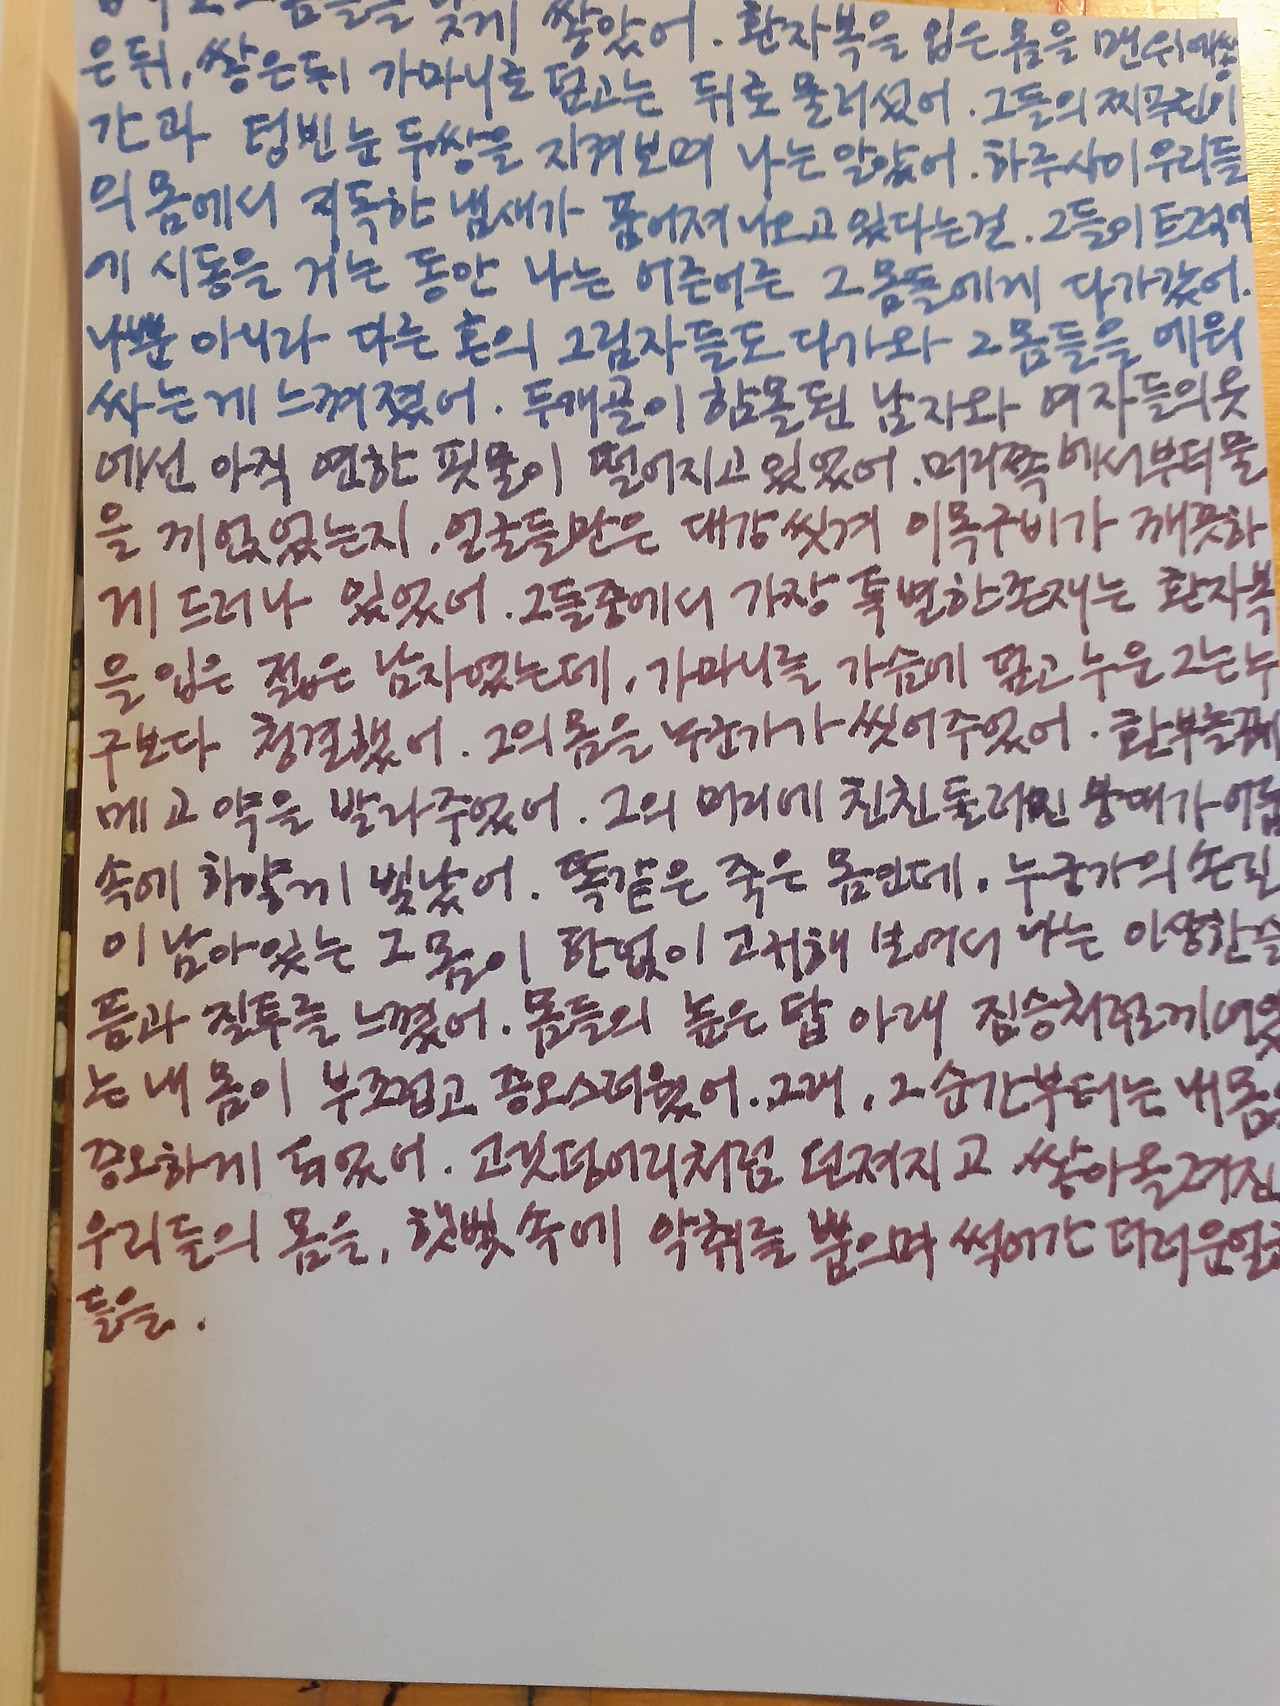 몸들을 맞게 쌓았어. 환자복을 입은 몸을 맨 위에 쌓
은 뒤, 쌓은 뒤 가마니로 덮고는 뒤로 물러섰어. 그들의 찌푸린 미
간과 텅빈 눈 두쌍을 지켜보며 나는 알았어. 하루사이 우리들
의 몸에서 지독한 냄새가 품어져 나오고 있다는걸. 그들이 트럭에
에 시동을 거는 동안 나는 어른어른 그 몸들에게 다가갔어.
나뿐 아니라 다른 혼의 그림자들도 다가와 그 몸들을 에워
싸는게 느껴졌어. 두개골이 함몰된 남자와 여자들의 옷
에선 아직 연한 핏물이 떨어지고 있었어. 머리쪽에서부터 물
을 끼얹었는지, 얼굴들만은 대강 씻겨 이목구비가 깨끗하
게 드러나 있었어. 그들중에서 가장 특별한 존재는 환자복
을 입은 젊은 남자였는데, 가마니를 가슴에 덮고 누운 그는 누
구보다 청결했어. 그의 몸을 누군가가 씻어주었어. 환부를 꿰
메고 약을 발라주었어. 그의 머리에 친친 둘러진 붕대가 어둠
속에 하얗게 빛났어. 똑같은 죽은 몸인데, 누군가의 손길
이 남아있는 그 몸이 한없이 고귀해 보여서 나는 이상한 슬
픔과 질투를 느꼈어. 몸들의 높은 탑 아래 짐승처럼 끼여있
는 내 몸이 부끄럽고 증오스러웠어. 그래, 그 순간부터는 내 몸을
증오하게 되었어. 고깃덩어리처럼 던져지고 쌓아올려진
우리들의 몸을, 햇빛 속에 악취를 뿜으며 썩어간 더러운 얼굴
들을.